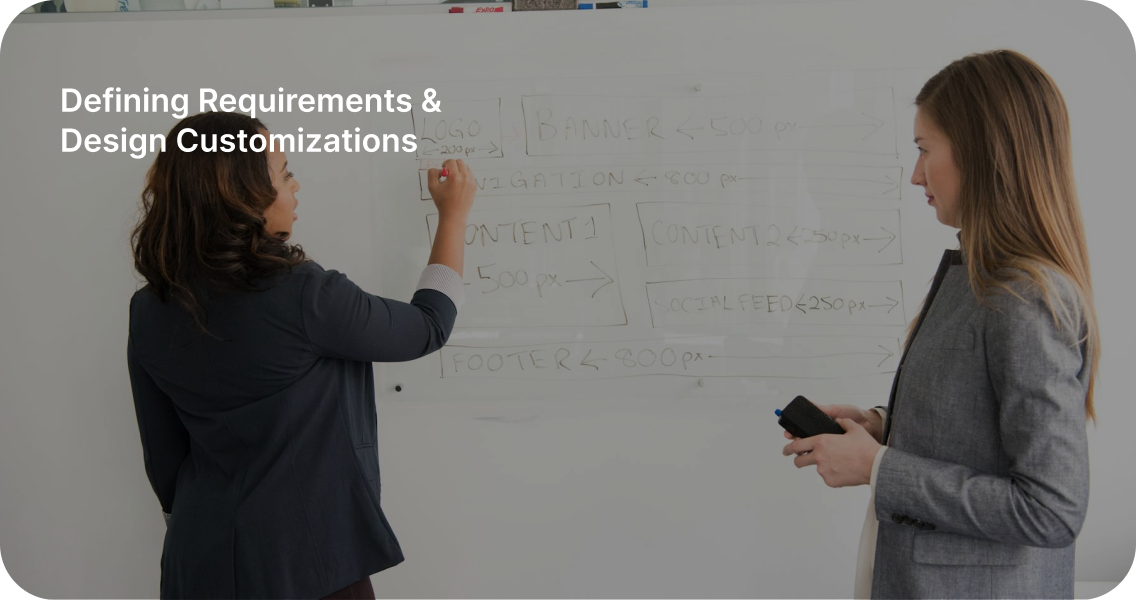 Defining Requirements &
Design Customizations
LOGO
BANNER ← 500 px →
← 200px →
VIGATION ← 800 px →
ONTENT 1
CONTENT 2 ← 250px →
500 px →
SOCIAL FEED ← 250px →
FOOTER ← 800px →